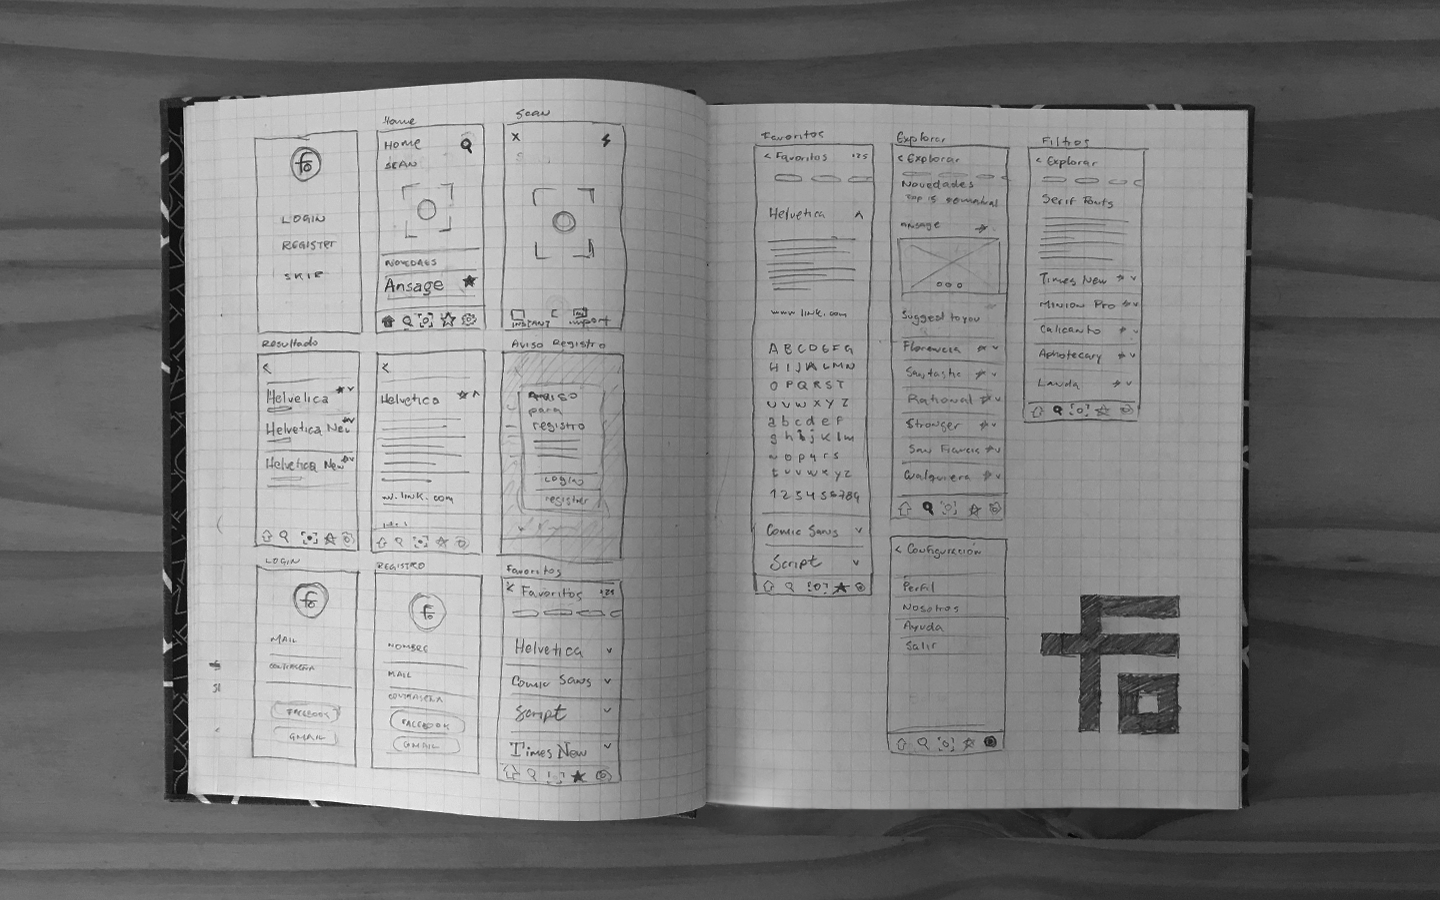 fo
LOGIN
REGISTER
SKIP
Home
HOME
SCAN
NOVEDADES
Ansage
Scan
X
INSTANT
import
Resultado
<
Helvetica
Helvetica Neu
Helvetica New
<
Helvetica
w.link.com
Aviso Registro
AVISO
para
registro
Login
registrar
LOGIN
fo
MAIL
CONTRASEÑA
FACEBOOK
GMAIL
REGISTRO
fo
NOMBRE
MAIL
CONTRASEÑA
FACEBOOK
GMAIL
Favoritos
< Favoritos 125
Helvetica
Comic Sans
Script
Times New
Favoritos
< Favoritos 125
Helvetica
www.link.com
A B C D E F G
H I J K L M N
O P Q R S T
U V W X Y Z
a b c d e f
g h i j k l m
n o p q r s
t u v w x y z
1 2 3 4 5 6 7 8 9
Comic Sans
Script
Explorar
< Explorar
Novedades
Top 15 semanal
Ansage
Suggest to you
Florencia
Santasha
Rational
Stronger
Cualquiera
< Configuración
Perfil
Nosotros
Ayuda
Salir
Filtros
< Explorar
Serif Fonts
Times New
Minion Pro
Calicanto
Aphotecary
Lauda
fo